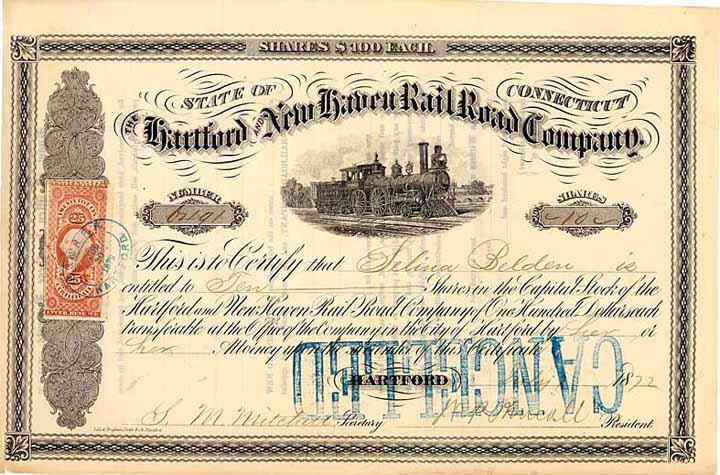 SHARES $100 EACH.
STATE OF CONNECTICUT
THE Hartford AND New Haven Rail Road Company.
NUMBER SHARES
10
25 25
This is to Certify that Selina Belden is
entitled to Ten Shares in the Capital Stock of the
Hartford and New Haven Rail-Road Company of One Hundred Dollars each
transferable at the Office of the Company in the City of Hartford by her or
her Attorney upon of this Certificate
CANCELLED
HARTFORD 1872
S. M. Secretary President.